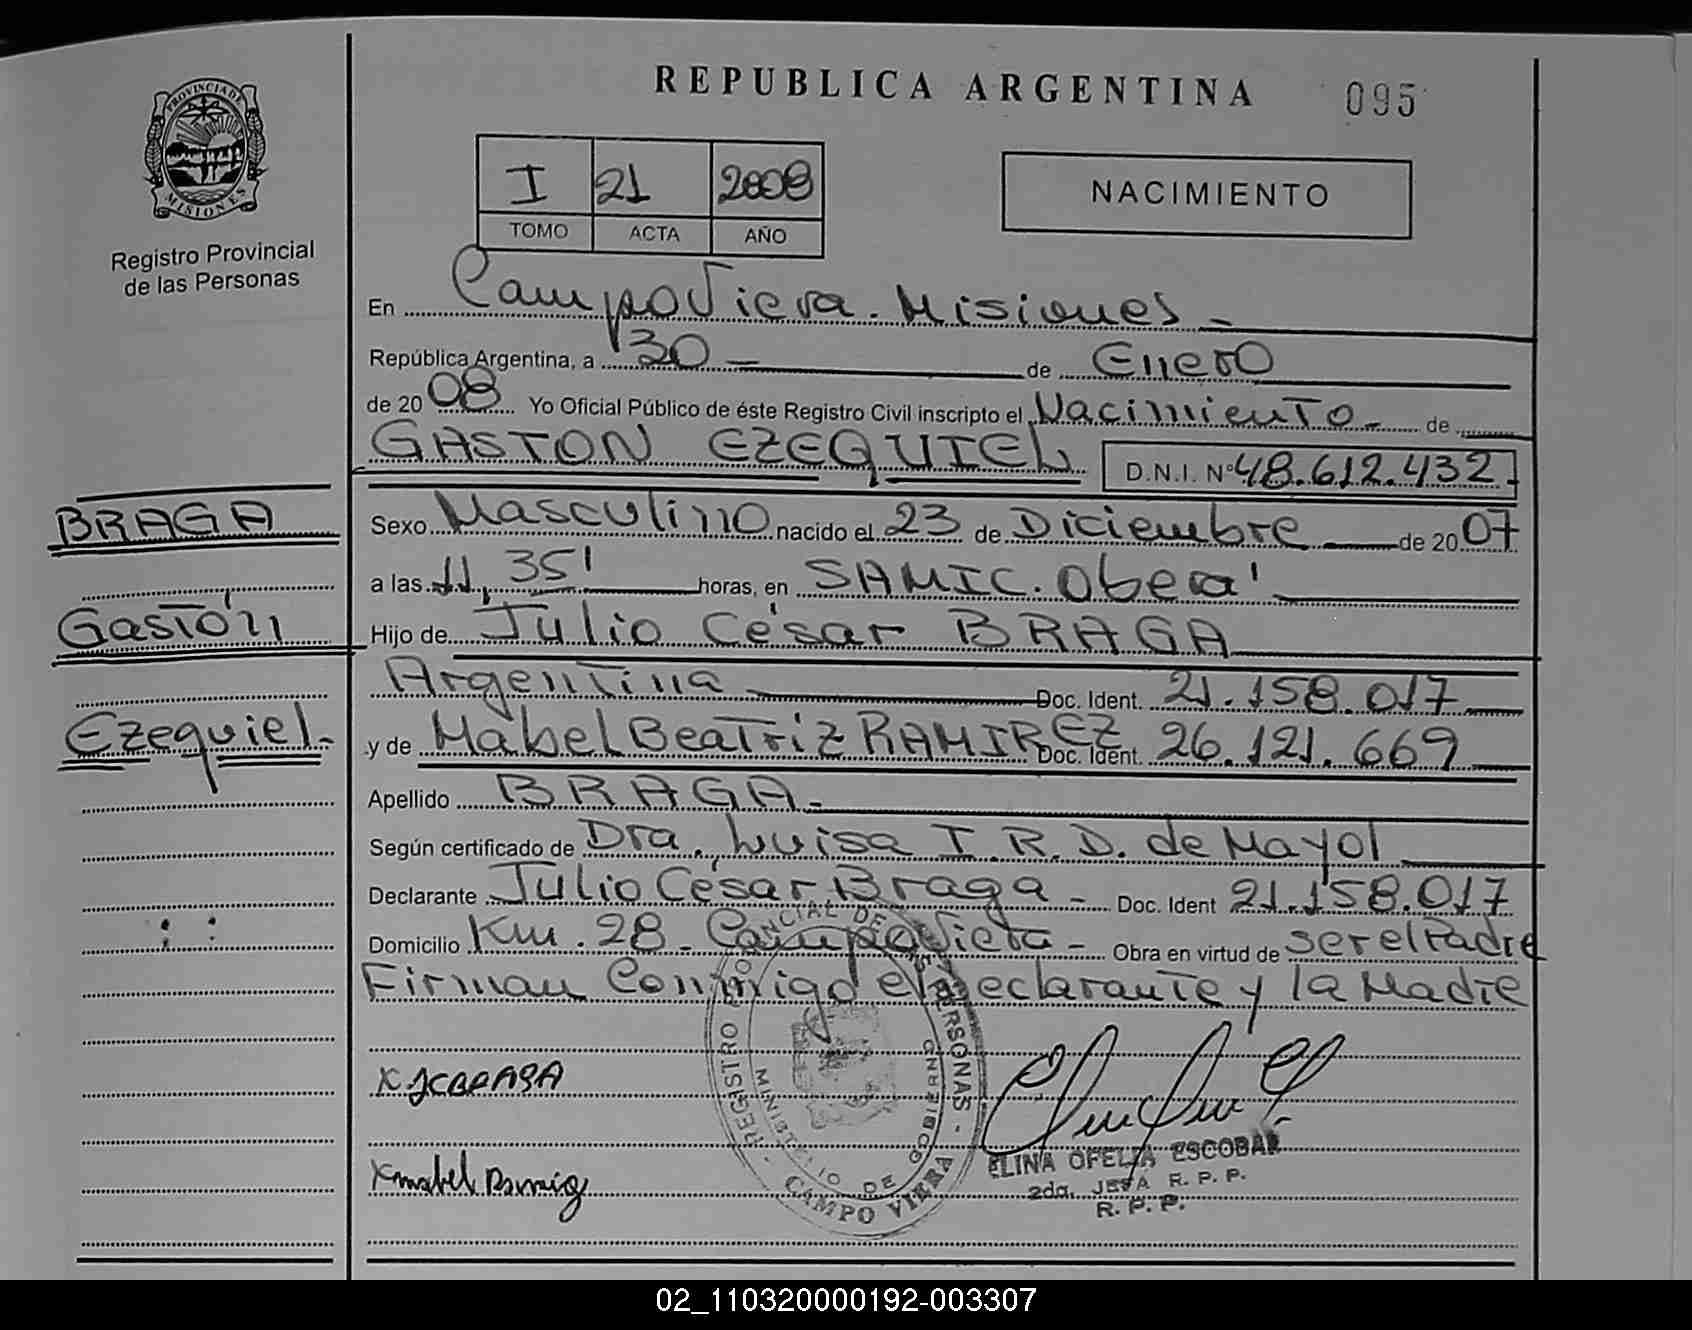 REPUBLICA ARGENTINA
095
PROVINCIA DE
MISIONES
Registro Provincial
de las Personas
I 21 2008
TOMO ACTA AÑO
NACIMIENTO
En Campo Viera. Misiones -
República Argentina, a 30 - de Enero
de 20 08 Yo Oficial Público de éste Registro Civil inscripto el Nacimiento - de
GASTON EZEQUIEL D.N.I. Nº 48.612.432
BRAGA
Gastón
Ezequiel.-
Sexo Masculino nacido el 23 de Diciembre de 20 07
a las 11, 35' horas, en SAMIC. Oberá
Hijo de Julio César BRAGA
Argentina Doc. Ident. 21.158.017
y de Mabel Beatriz RAMIREZ Doc. Ident. 26.121.669
Apellido BRAGA -
Según certificado de Dra. Luisa I. R. D. de Mayol
Declarante Julio César Braga - Doc. Ident 21.158.017
Domicilio Km. 28 - Campo Viera - Obra en virtud de ser el Padre
Firman Conmigo el Declarante y la Madre
X JCBRAGA
X Mabel Ramirez
REGISTRO PROVINCIAL DE LAS PERSONAS -
MINISTERIO DE GOBIERNO
- CAMPO VIERA
ELINA OFELIA ESCOBAR
2da. JEFA R. P. P.
R. P. P.
02_110320000192-003307